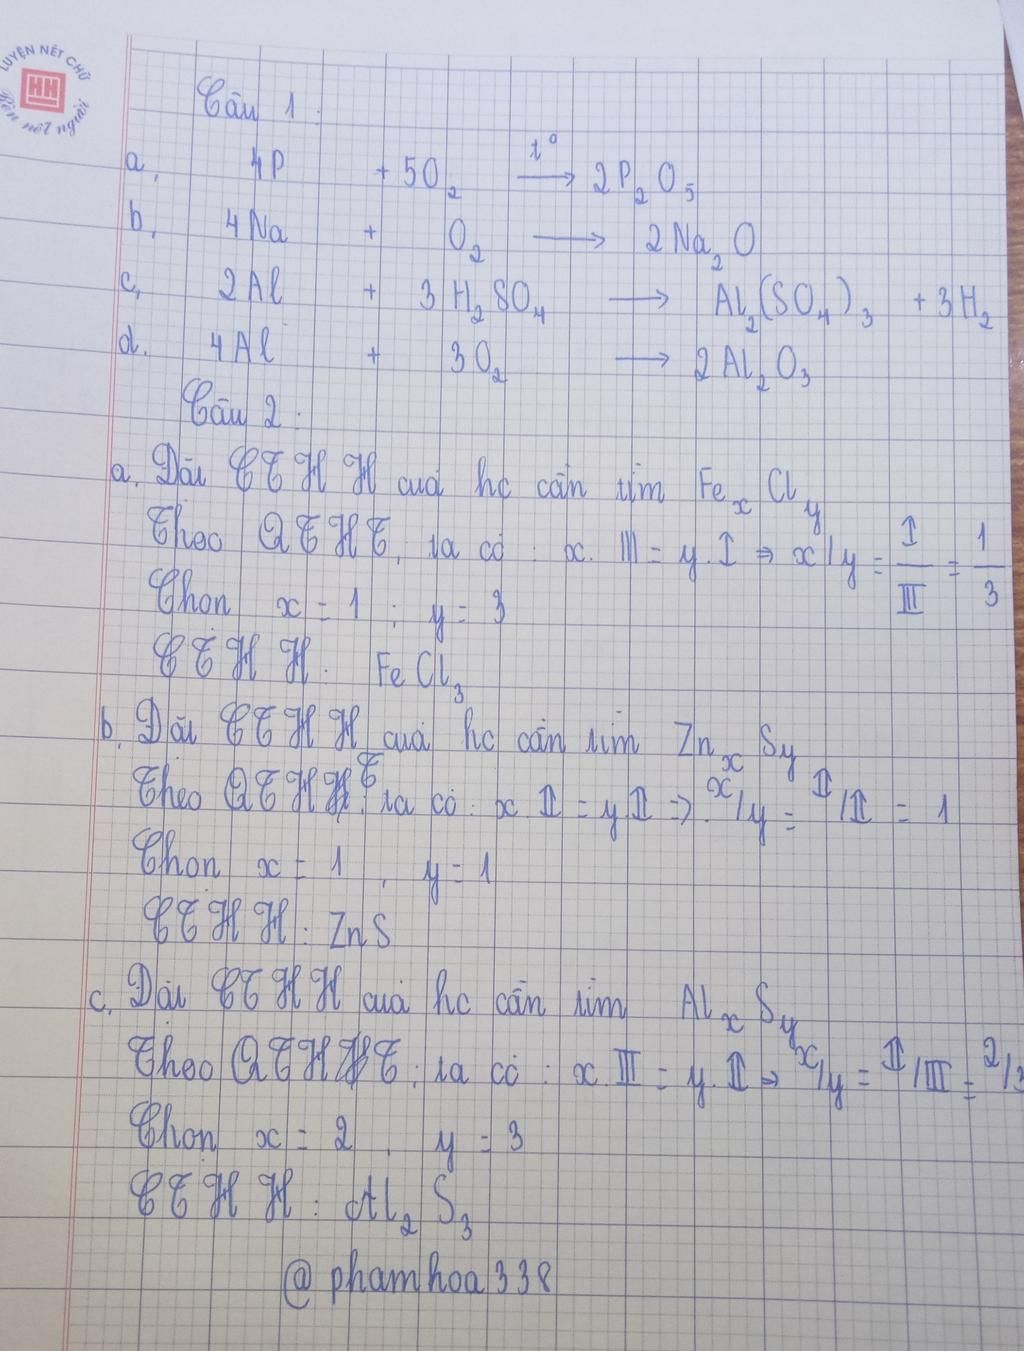 LUYỆN NÉT CHỮ
HH
Rèn nết người
Câu 1:
a, 4P + 5O₂ —t°→ 2P₂O₅
b, 4Na + O₂ → 2Na₂O
c, 2Al + 3H₂SO₄ → Al₂(SO₄)₃ + 3H₂
d. 4Al + 3O₂ → 2Al₂O₃
Câu 2:
a. Đặt CTHH của hc cần tìm FeₓClᵧ
Theo QTHT, ta có: x. III = y. I ⇒ x/y = I/III = 1/3
Chọn x = 1 ; y = 3
CTHH: FeCl₃
b. Đặt CTHH của hc cần tìm ZnₓSᵧ
Theo QTHHT, ta có: x II = y II ⇒ x/y = II/II = 1
Chọn x = 1, y = 1
CTHH: ZnS
c. Đặt CTHH của hc cần tìm AlₓSᵧ
Theo QTHHT, ta có: x. III = y. II ⇒ x/y = II/III = 2/3
Chọn x = 2, y = 3
CTHH: Al₂S₃
@phamhoa338